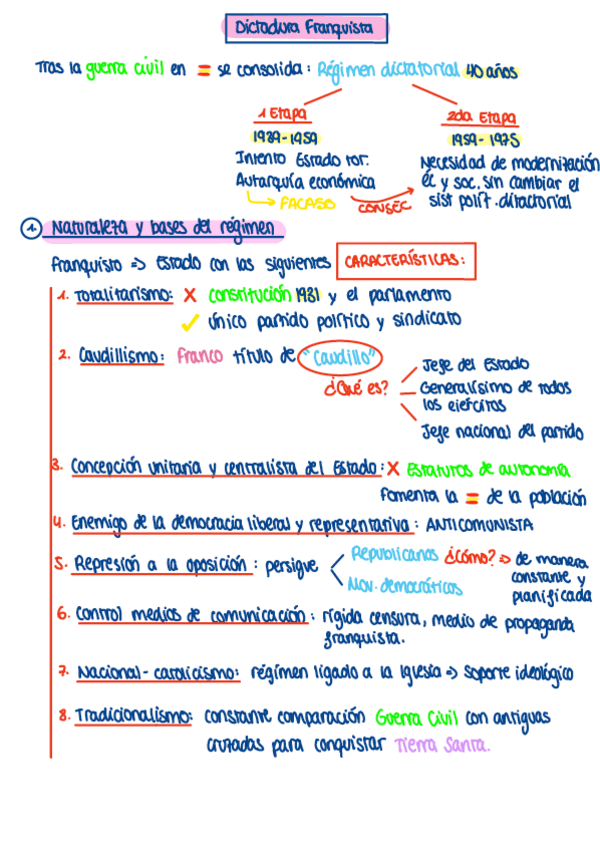 Dictadura Franquista
Tras la guerra civil en se consolida: Régimen dictatorial 40 años
1 Etapa
1939-1959
Intento Estado tot.
Autarquía económica
FACASO
CONSEC
2da Etapa
1959-1975
Necesidad de modernización
ec y soc. sin cambiar el
sist polít. ditactorial
1. Naturaleza y bases del régimen
Franquisto => Estado con las siguientes CARACTERÍSTICAS:
1. Totalitarismo: X constitución 1931 y el parlamento
✓ único partido político y sindicato
2. Caudillismo: Franco título de "Caudillo"
¿Qué es?
Jefe del Estado
Generalísimo de todos
los ejércitos
Jefe nacional del partido
3. Concepción unitaria y centralista del Estado: X Estatutos de autonomía
Fomenta la = de la población
4. Enemigo de la democracia liberal y representativa: ANTICOMUNISTA
5. Represión a la oposición: persigue
Republicanos
Mov. democráticos
¿Cómo? => de manera
constante y
planificada
6. Control medios de comunicación: rígida censura, medio de propaganda
franquista.
7. Nacional-catolicismo: régimen ligado a la Iglesia => soporte ideológico
8. Tradicionalismo: constante comparación Guerra Civil con antiguas
cruzadas para conquistar Tierra Santa.